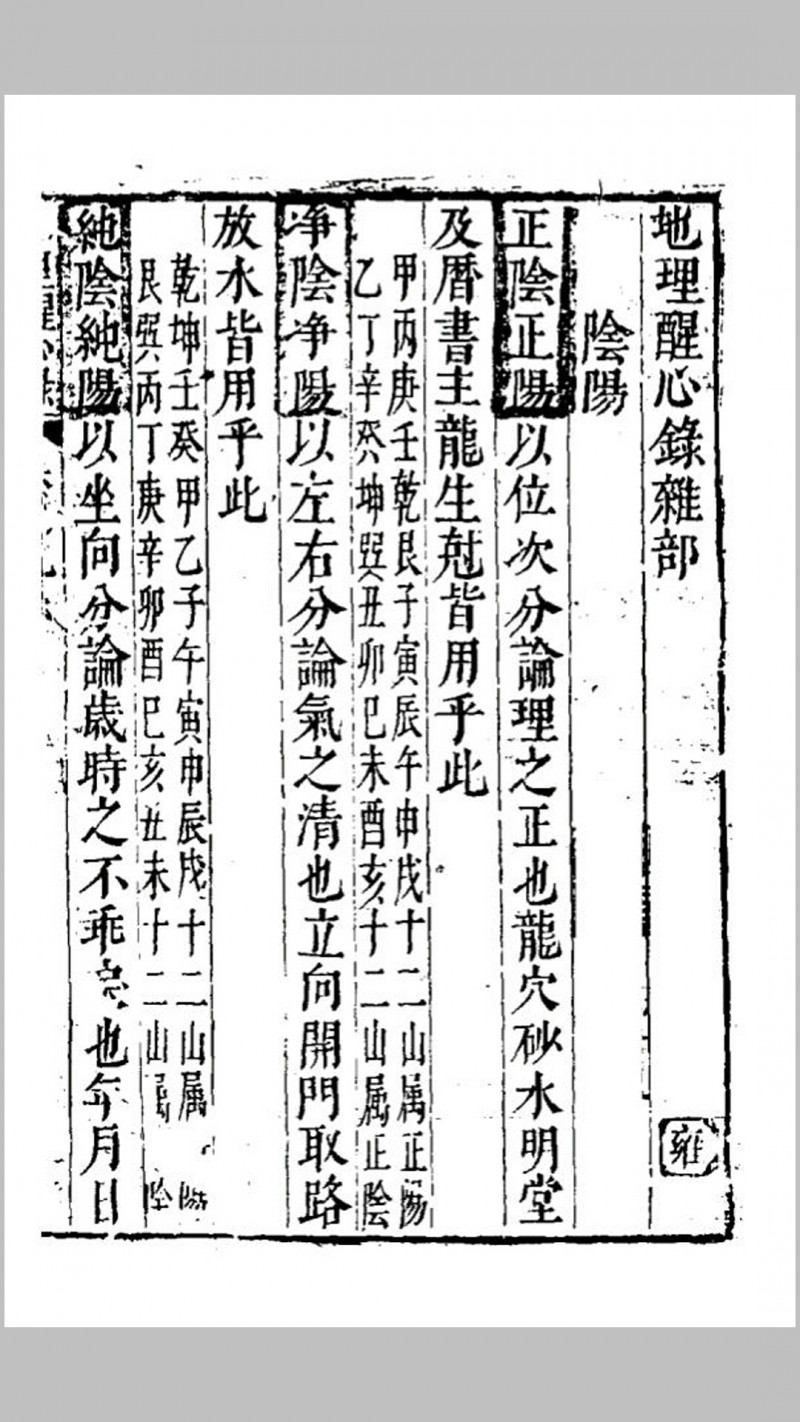 地理醒心錄雜部
雍
陰陽
正陰正陽以位次分論理之正也龍穴砂水明堂
及曆書主龍生尅皆用乎此
甲丙庚壬乾艮子寅辰午申戌十二山属正陽
乙丁辛癸坤巽丑卯巳未酉亥十二山属正陰
净陰净陽以左右分論氣之清也立向開門取路
放水皆用乎此
乾坤壬癸甲乙子午寅申辰戌十二山属陽
艮巽丙丁庚辛卯酉巳亥丑未十二山属陰
純陰純陽以坐向分論歲時之不乖也年月日